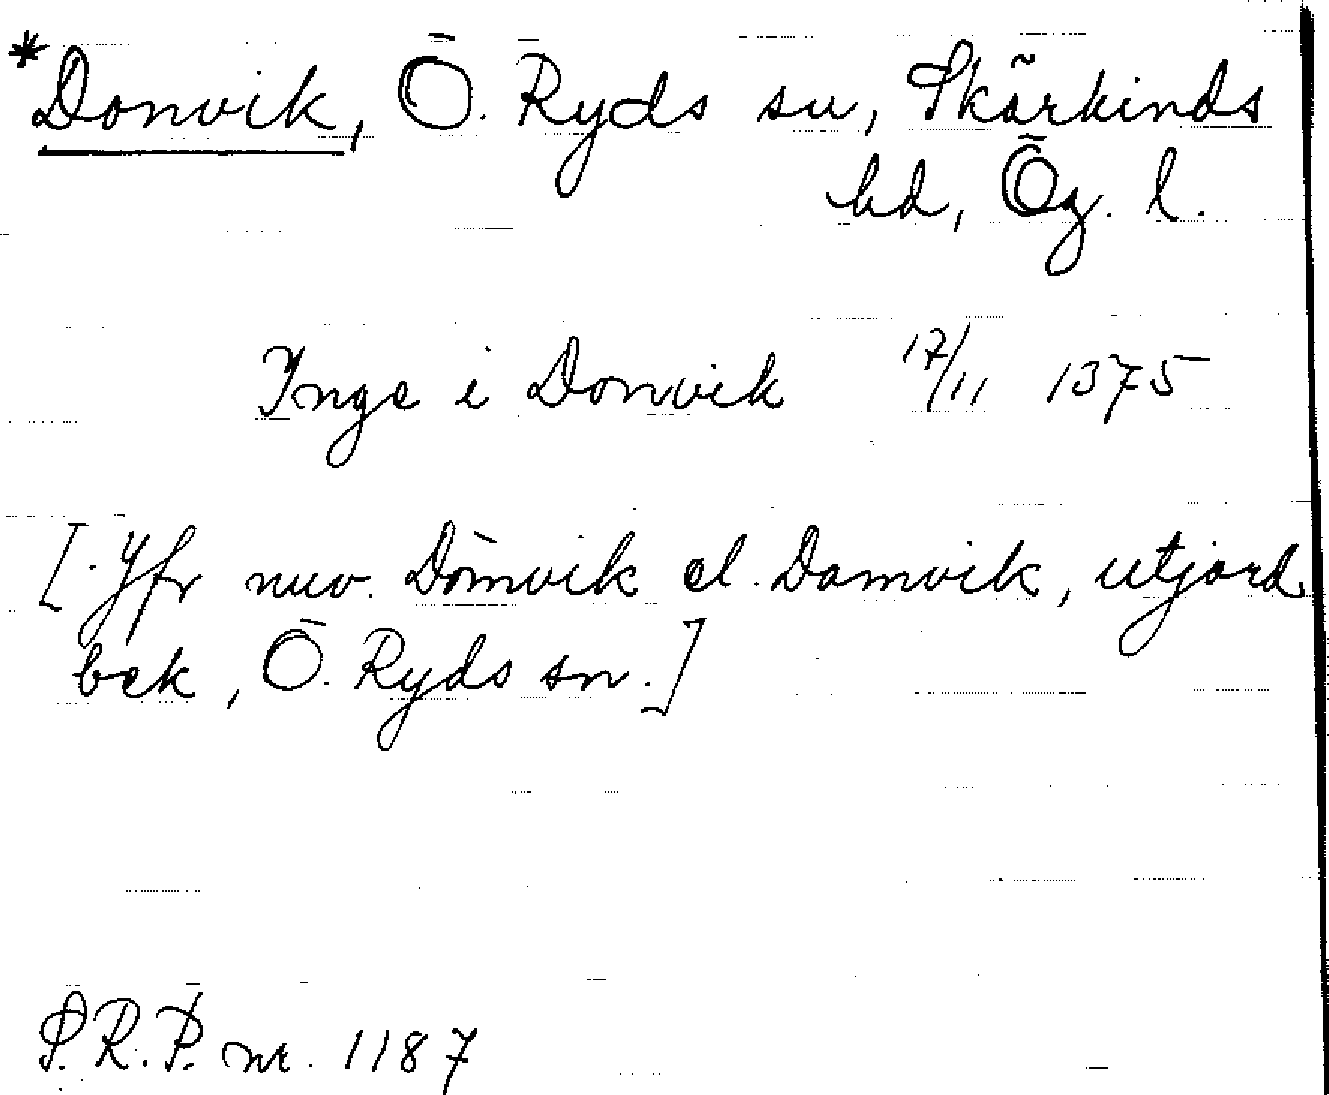 *Donvik, Ö. Ryds sn, Skärkinds
hd, Ög. l.
Inge i Donvik 17/11 1375
[Jfr nuv. Dömvik el. Damvik, utjord
bek, Ö. Ryds sn.]
S.R.P. nr. 1187